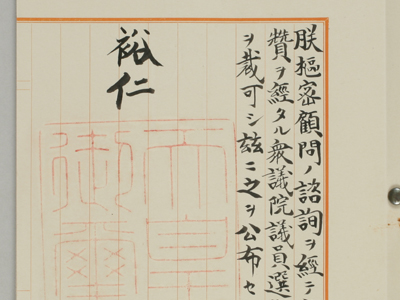 朕樞密顧問ノ諮詢ヲ經テ
贊ヲ經タル衆議院議員選
ヲ裁可シ茲ニ之ヲ公布セ
裕仁
天皇
御璽